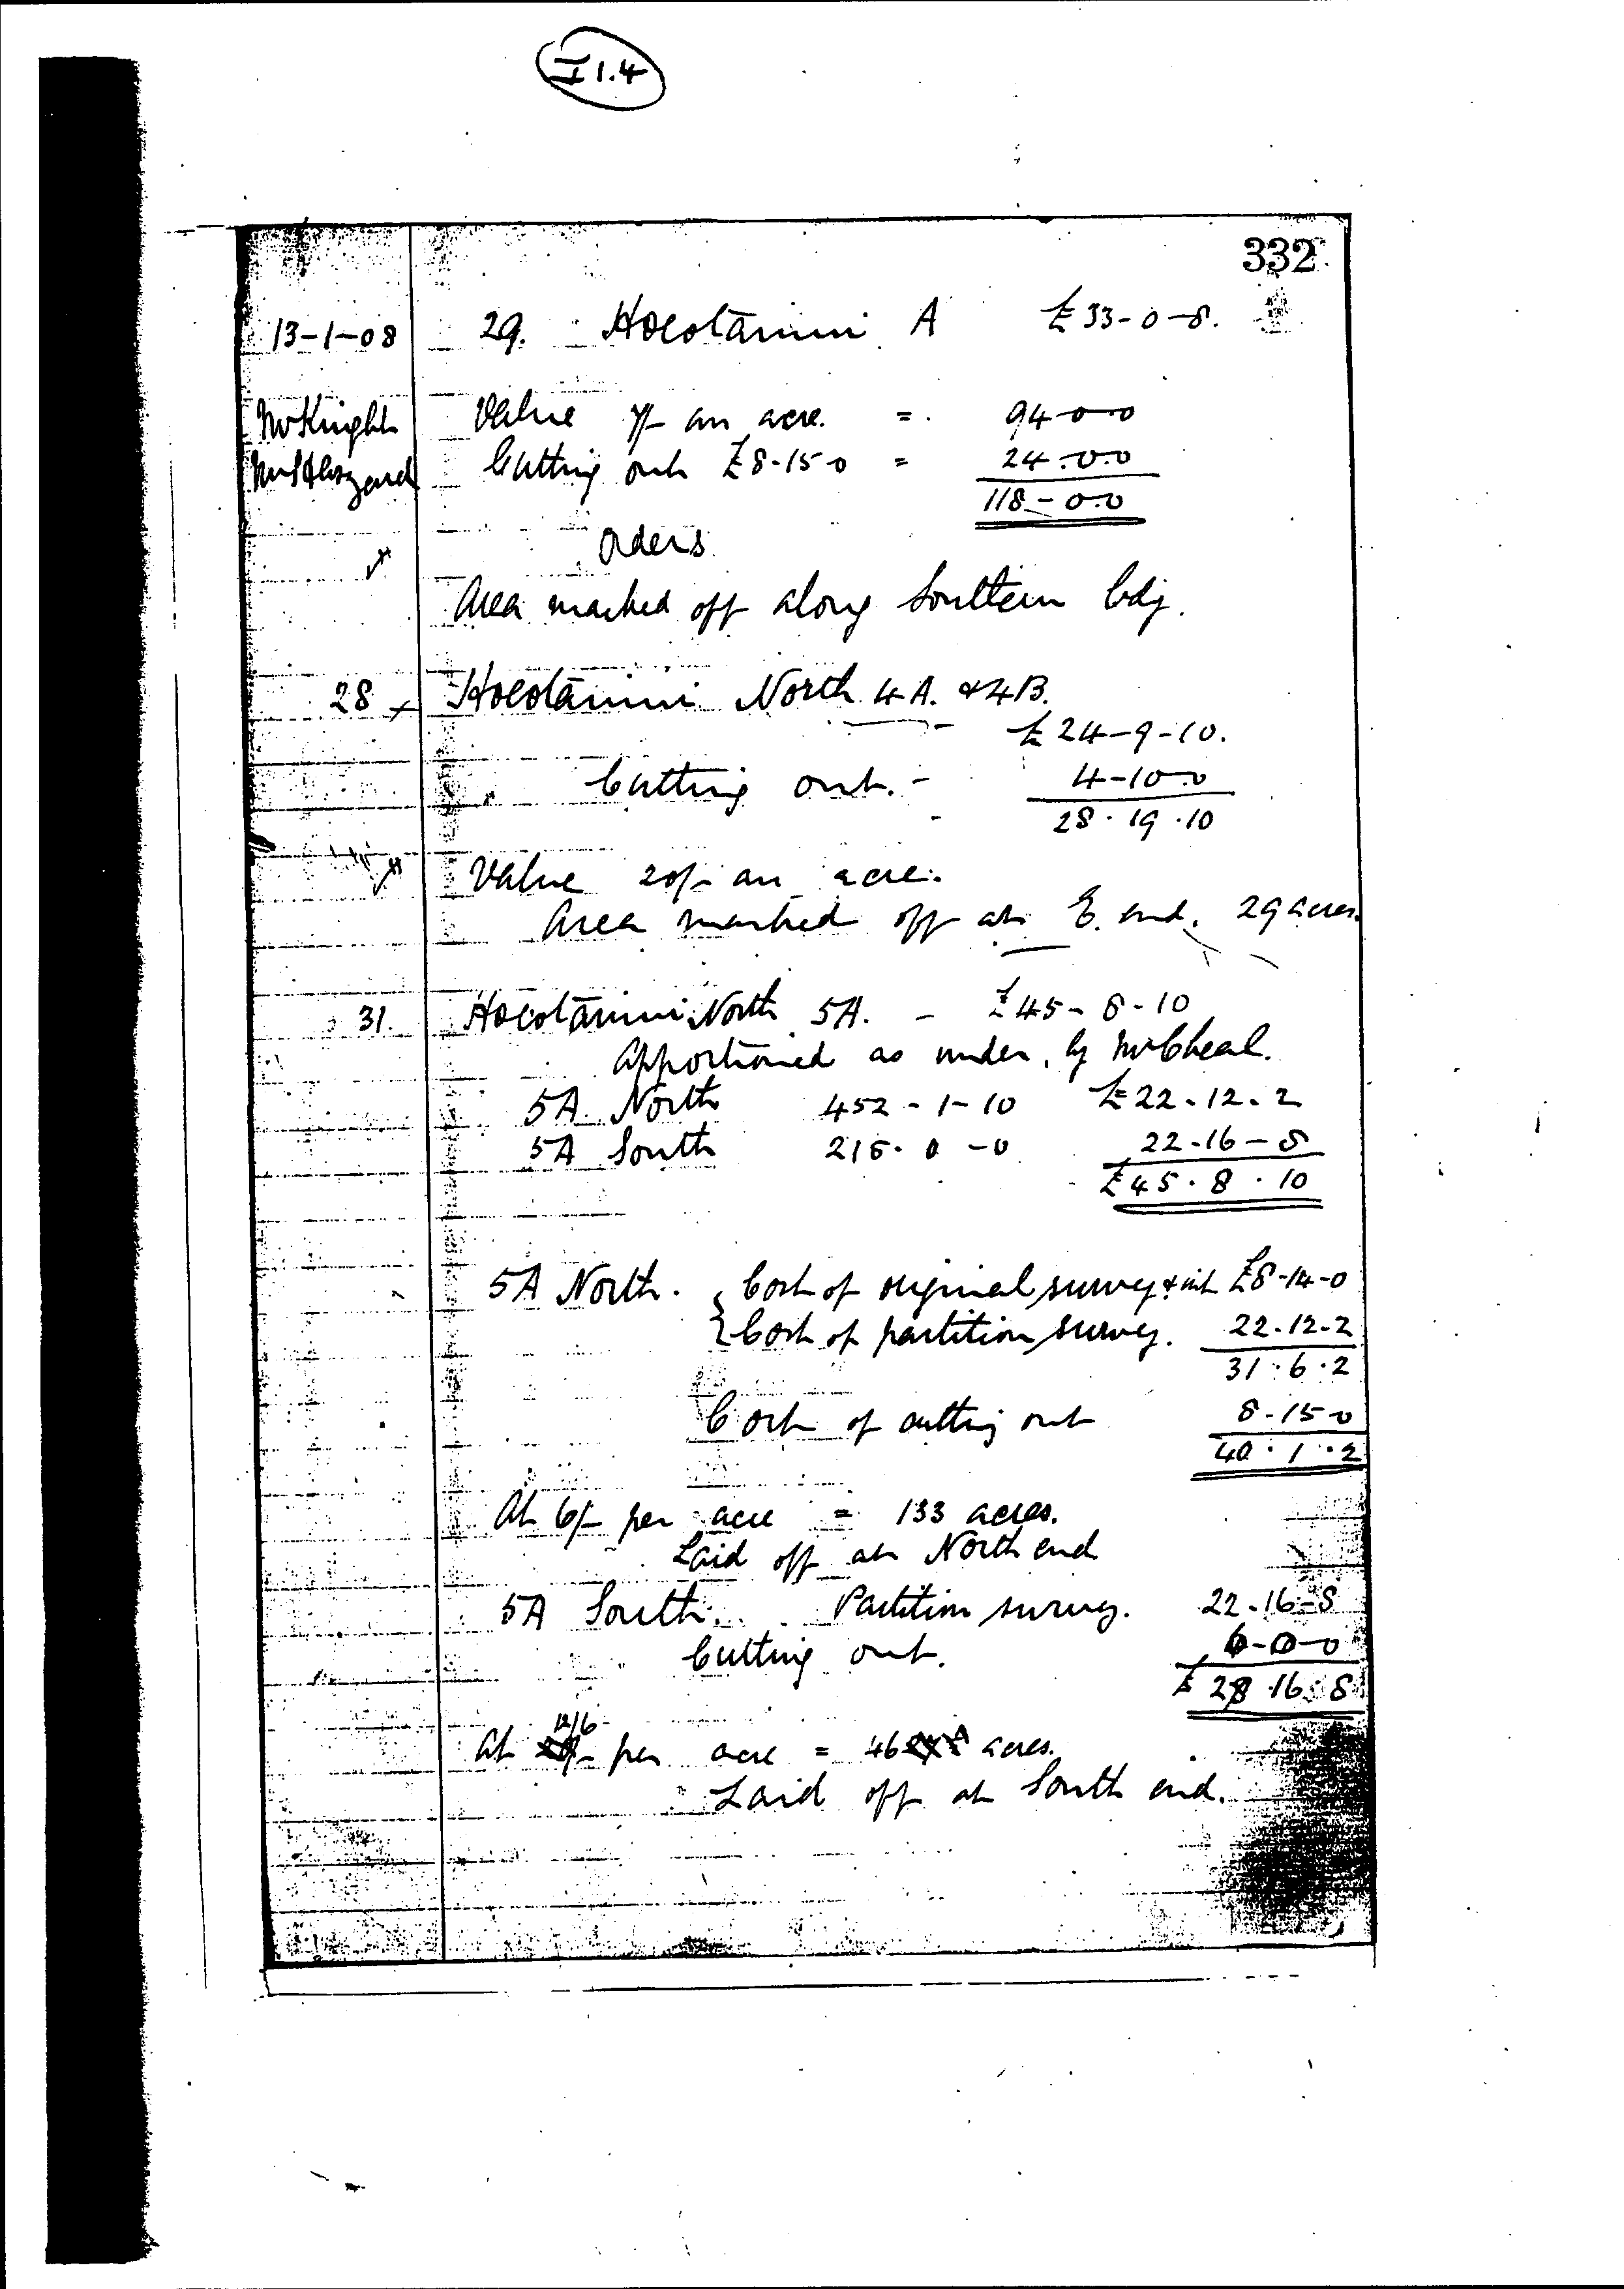 I 1.4
332
13-1-08 29. Hocotainui A £33-0-8.
Mr Knight Value 7/- an acre. = 94-0-0
Mr Blizzard Cutting out £8-15-0 = 24.0.0
118-0-0
Orders
Area marked off along Southern bdy.
28 Hocotainui North 4A. & 4B.
£24-9-10.
Cutting out. - 4-10-0
28.19.10
Value 20/- an acre.
Area marked off at E. end. 29 acres.
31. Hocotainui North 5A. - £45-8-10
Apportioned as under, by Mr Cheal.
5A North 452-1-10 £22.12.2
5A South 215.0-0 22.16-8
£45.8.10
5A North. Cost of original survey & int £8-14-0
Cost of partition survey. 22.12-2
31.6.2
Cost of cutting out 8-15-0
40.1.2
At 6/- per acre = 133 acres.
Laid off at North end
5A South. Partition survey. 22.16-8
Cutting out. 6-0-0
£28.16.8
At 12/6 per acre = 46 acres.
Laid off at South end.